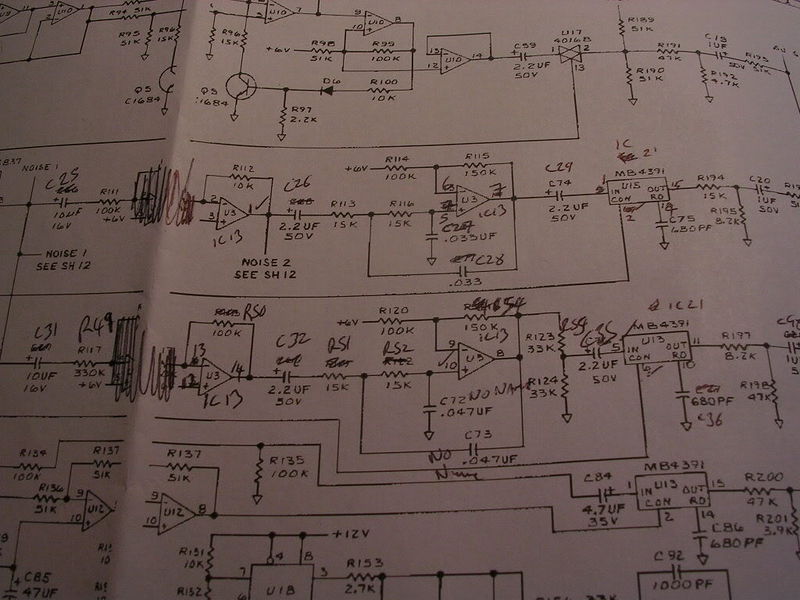 R94 51K
R95
51K
R96
15K
Q5
C1684
R96
15K
U10
7
9
10
U10
8
+6V
R98
51K
R99
100K
R100
10K
D6
R97
2.2K
13
12
U10
14
C59
2.2UF
50V
U17
4016B
1
2
13
R189
51K
R190
51K
R191
47K
R192
4.7K
1UF
50V
NOISE 1
C25
10UF
16V
R111
100K
+6V
NOISE 1
SEE SH 12
R112
10K
2
3
U3
1
IC13
C26
2.2UF
50V
NOISE 2
SEE SH 12
R113
15K
R116
15K
+6V
R114
100K
R115
150K
6
5
U3
7
IC13
.033UF
C28
.033
C29
C74
2.2UF
50V
IC 21
MB4391
U15
IN
OUT
CON
RD
2
C75
680PF
R194
15K
R195
8.2K
C20
1UF
50V
C31
10UF
16V
R49
R117
330K
+6V
R50
100K
13
12
U3
14
IC13
C32
2.2UF
50V
R51
15K
R52
15K
+6V
R120
100K
R54
150K
IC13
9
10
U3
8
C72 NO NAME
.047UF
C73
.047UF
NO
Name
R123
33K
R124
33K
2.2UF
50V
5
IC21
MB4391
U13
IN
OUT
CON
RD
11
10
680PF
C36
R197
8.2K
R198
47K
R134
100K
R137
51K
R136
51K
9
10
U12
R137
51K
9
10
U12
8
R135
100K
C84
4.7UF
35V
MB4391
1
IN
U13
OUT
CON
RD
15
2
14
C86
680PF
R200
47K
R201
3.9K
C85
47UF
+12V
R151
10K
R152
4
8
7
U18
3
R153
2.7K
C92
1000PF